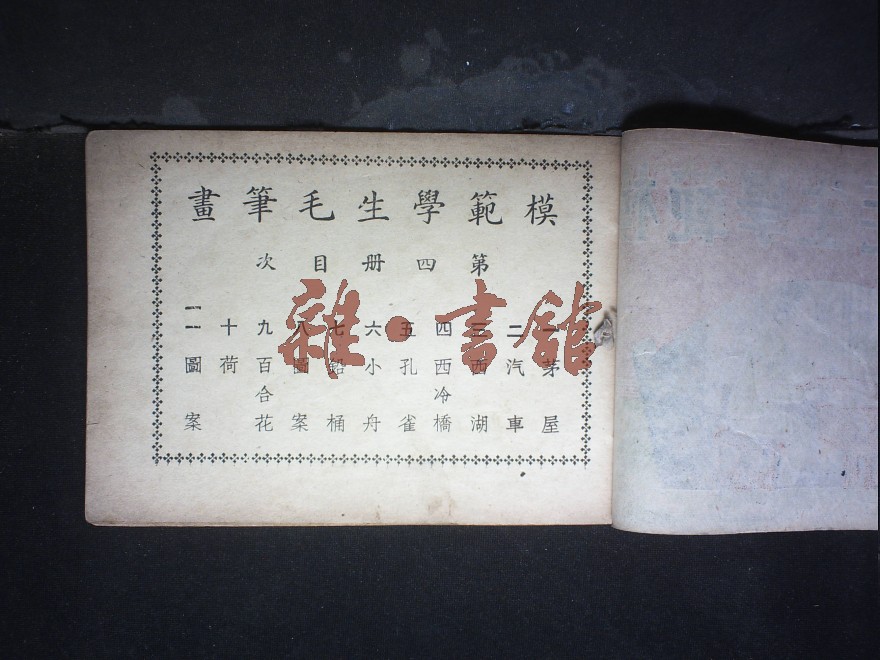 模範學生毛筆畫
第四册目次
一茅屋
二汽車
三西湖
四西冷橋
五孔雀
六小舟
七鉛桶
八圖案
九百合花
十荷
一一圖案
雜·書館